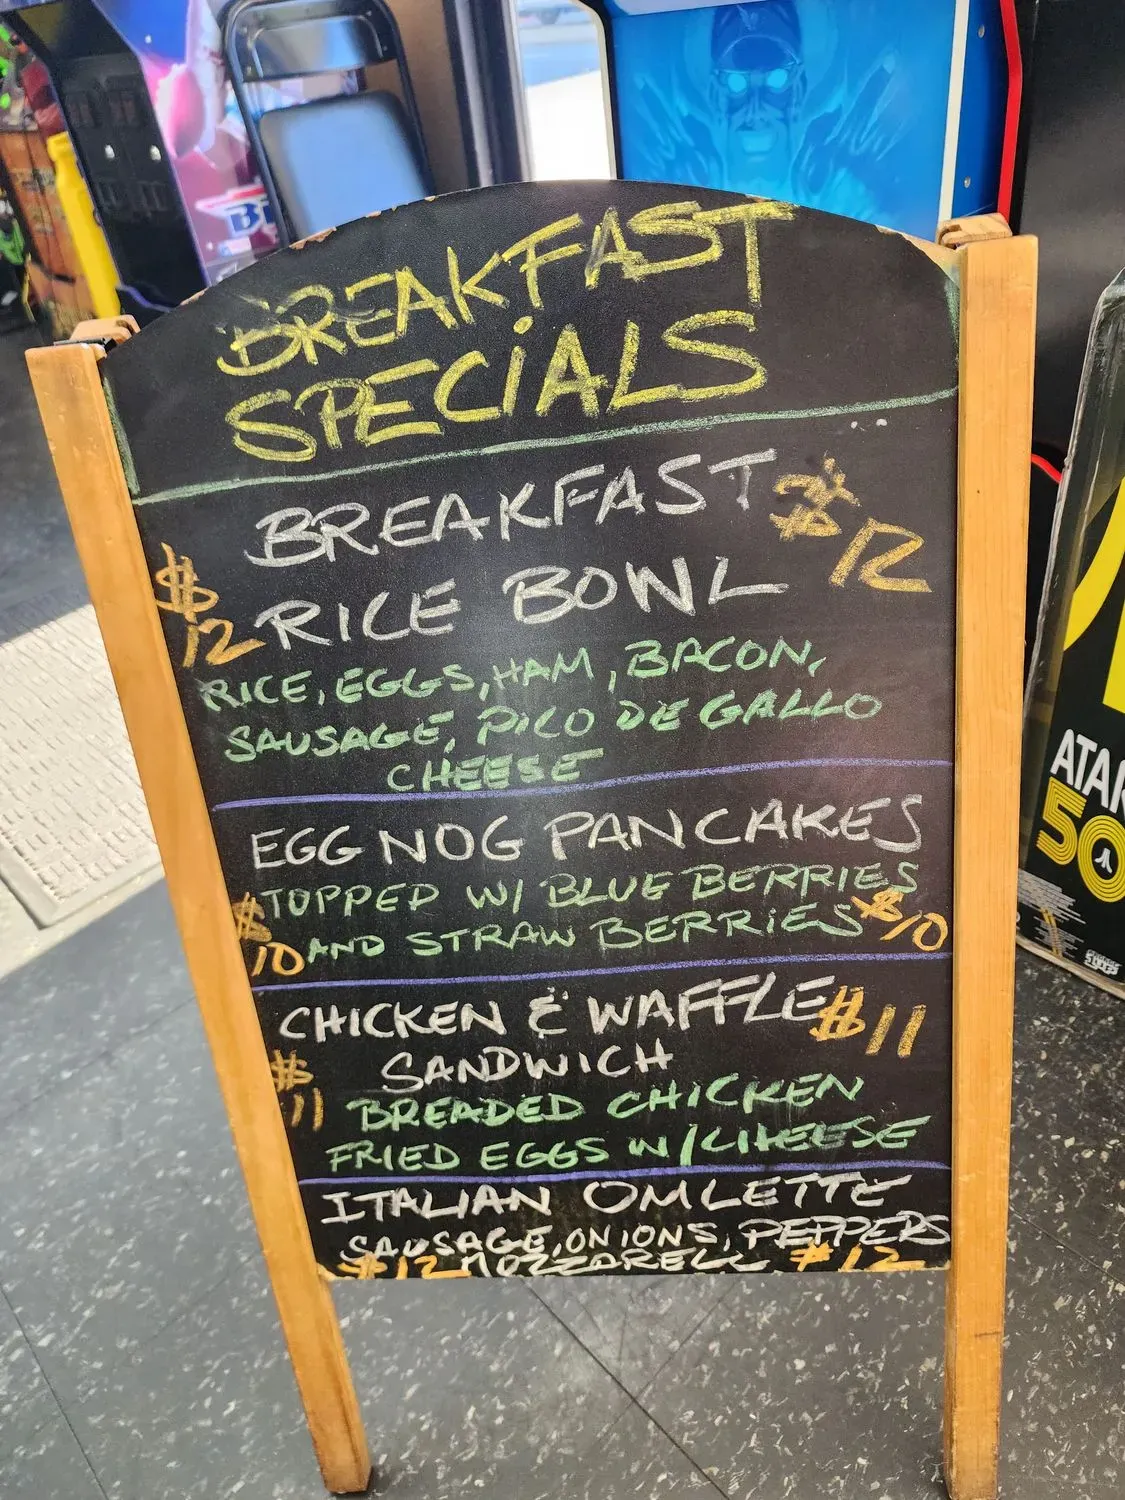 BREAKFAST
SPECiALS
BREAKFAST $
12
$
12
RICE BOWL
RICE, EGGS, HAM, BACON,
SAUSAGE, PICO DE GALLO
CHEESE
EGG NOG PANCAKES
TOPPED W/ BLUE BERRIES
$
10
AND STRAW BERRIES $10
CHICKEN & WAFFLE $11
SANDWICH
$
11
BREADED CHICKEN
FRIED EGGS W/CHEESE
ITALIAN OMLETTE
SAUSAGE, ONIONS, PEPPERS
$12 MOZZARELL $12
ATAR
50